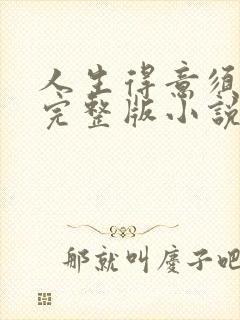 人生得意须
完整版小說
那就叫慶子吧